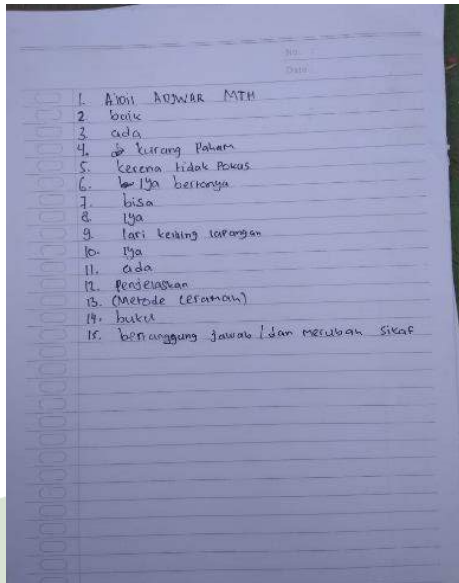 No. :
Date :
1. ADJWAR MTH
2. baik
3. ada
4. kurang Paham
5. kerena tidak Pokus
6. Iya bertanya
7. bisa
8. Iya
9. lari keliling lapangan
10. Iya
11. ada
12. Penjelaskan
13. (Metode ceramah)
14. buku
15. bertanggung Jawab / dan merubah sikaf